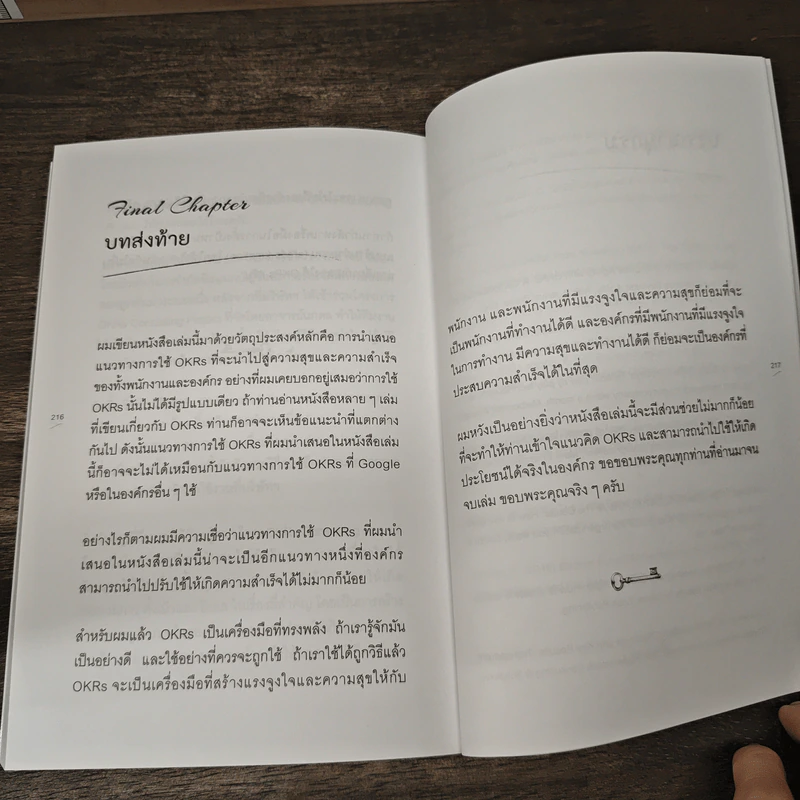 Final Chapter
บทส่งท้าย
ผมเขียนหนังสือเล่มนี้มาด้วยวัตถุประสงค์หลักคือ การนำเสนอ
แนวทางการใช้ OKRs ที่จะนำไปสู่ความสุขและความสำเร็จ
ของทั้งพนักงานและองค์กร อย่างที่ผมเคยบอกอยู่เสมอว่าการใช้
OKRs นั้นไม่ได้มีรูปแบบเดียว ถ้าท่านอ่านหนังสือหลาย ๆ เล่ม
ที่เขียนเกี่ยวกับ OKRs ท่านก็อาจจะเห็นข้อแนะนำที่แตกต่าง
กันไป ดังนั้นแนวทางการใช้ OKRs ที่ผมนำเสนอในหนังสือเล่ม
นี้ก็อาจจะไม่ได้เหมือนกับแนวทางการใช้ OKRs ที่ Google
หรือในองค์กรอื่น ๆ ใช้
อย่างไรก็ตามผมมีความเชื่อว่าแนวทางการใช้ OKRs ที่ผมนำ
เสนอในหนังสือเล่มนี้น่าจะเป็นอีกแนวทางหนึ่งที่องค์กร
สามารถนำไปปรับใช้ให้เกิดความสำเร็จได้ไม่มากก็น้อย
สำหรับผมแล้ว OKRs เป็นเครื่องมือที่ทรงพลัง ถ้าเรารู้จักมัน
เป็นอย่างดี และใช้อย่างที่ควรจะถูกใช้ ถ้าเราใช้ได้ถูกวิธีแล้ว
OKRs จะเป็นเครื่องมือที่สร้างแรงจูงใจและความสุขให้กับ
216
พนักงาน และพนักงานที่มีแรงจูงใจและความสุขก็ย่อมที่จะ
เป็นพนักงานที่ทำงานได้ดี และองค์กรที่มีพนักงานที่มีแรงจูงใจ
ในการทำงาน มีความสุขและทำงานได้ดี ก็ย่อมจะเป็นองค์กรที่
ประสบความสำเร็จได้ในที่สุด
ผมหวังเป็นอย่างยิ่งว่าหนังสือเล่มนี้จะมีส่วนช่วยไม่มากก็น้อย
ที่จะทำให้ท่านเข้าใจแนวคิด OKRs และสามารถนำไปใช้ให้เกิด
ประโยชน์ได้จริงในองค์กร ขอขอบพระคุณทุกท่านที่อ่านมาจน
จบเล่ม ขอบพระคุณจริง ๆ ครับ
217